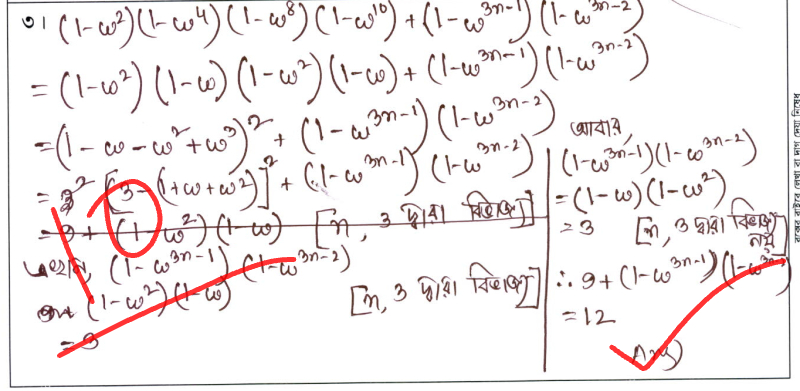 ৩। (1-ω²)(1-ω⁴)(1-ω⁸)(1-ω¹⁰) + (1-ω³ⁿ⁻¹)(1-ω³ⁿ⁻²)
= (1-ω²)(1-ω)(1-ω²)(1-ω) + (1-ω³ⁿ⁻¹)(1-ω³ⁿ⁻²)
= (1-ω-ω²+ω³)² + (1-ω³ⁿ⁻¹)(1-ω³ⁿ⁻²)
[3-(1+ω+ω²)]² + (1-ω³ⁿ⁻¹)(1-ω³ⁿ⁻²)
= 9 + (1-ω²)(1-ω) [n, 3 দ্বারা বিভাজ্য]
এখন, (1-ω³ⁿ⁻¹)(1-ω³ⁿ⁻²)
(1-ω²)(1-ω) [n, 3 দ্বারা বিভাজ্য]
= 3
আবার,
(1-ω³ⁿ⁻¹)(1-ω³ⁿ⁻²)
= (1-ω)(1-ω²)
= 3 [n, 3 দ্বারা বিভাজ্য
নয়]
∴ 9 + (1-ω³ⁿ⁻¹)(1-ω³ⁿ⁻²)
= 12
Ans
দাগের বাইরে লেখা বা দাগ দেয়া নিষেধ